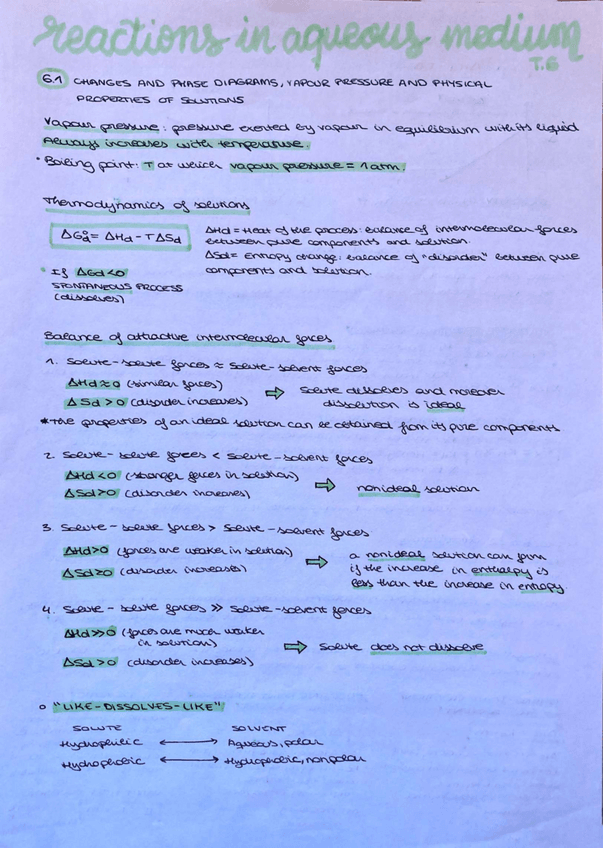 reactions in aqueous medium
T.6
6.1 CHANGES AND PHASE DIAGRAMS, VAPOUR PRESSURE AND PHYSICAL
PROPERTIES OF SOLUTIONS
Vapour pressure: pressure exerted by vapour in equilibrium with its liquid
Always increases with temperature.
· Boiling point: T at which vapour pressure = 1 atm.
Thermodynamics of solutions
ΔG°d = ΔHd - TΔSd
ΔHd = Heat of the process: balance of intermolecular forces
between pure components and solution.
ΔSd = Entropy change: balance of "disorder" between pure
components and solution.
· If ΔGd<0
SPONTANEOUS PROCESS
(dissolves)
Balance of attractive intermolecular forces
1. Solute-solute forces ≈ Solute-solvent forces
ΔHd≈0 (similar forces)
ΔSd>0 (disorder increases)
⇒ Solute dissolves and moreover
dissolution is ideal
*The properties of an ideal solution can be obtained from its pure components
2. Solute-solute forces < Solute-solvent forces
ΔHd<0 (stronger forces in solution)
ΔSd>0 (disorder increases)
⇒ nonideal solution
3. Solute-solute forces > Solute-solvent forces
ΔHd>0 (forces are weaker in solution)
ΔSd>0 (disorder increases)
⇒ a nonideal solution can form
if the increase in enthalpy is
less than the increase in entropy
4. Solute-solute forces >> Solute-solvent forces
ΔHd>>0 (forces are much weaker
in solution)
ΔSd>0 (disorder increases)
⇒ Solute does not dissolve
o "LIKE-DISSOLVES-LIKE"
SOLUTE SOLVENT
Hydrophilic ⟷ Aqueous, polar
Hydrophobic ⟷ Hydrophobic, nonpolar